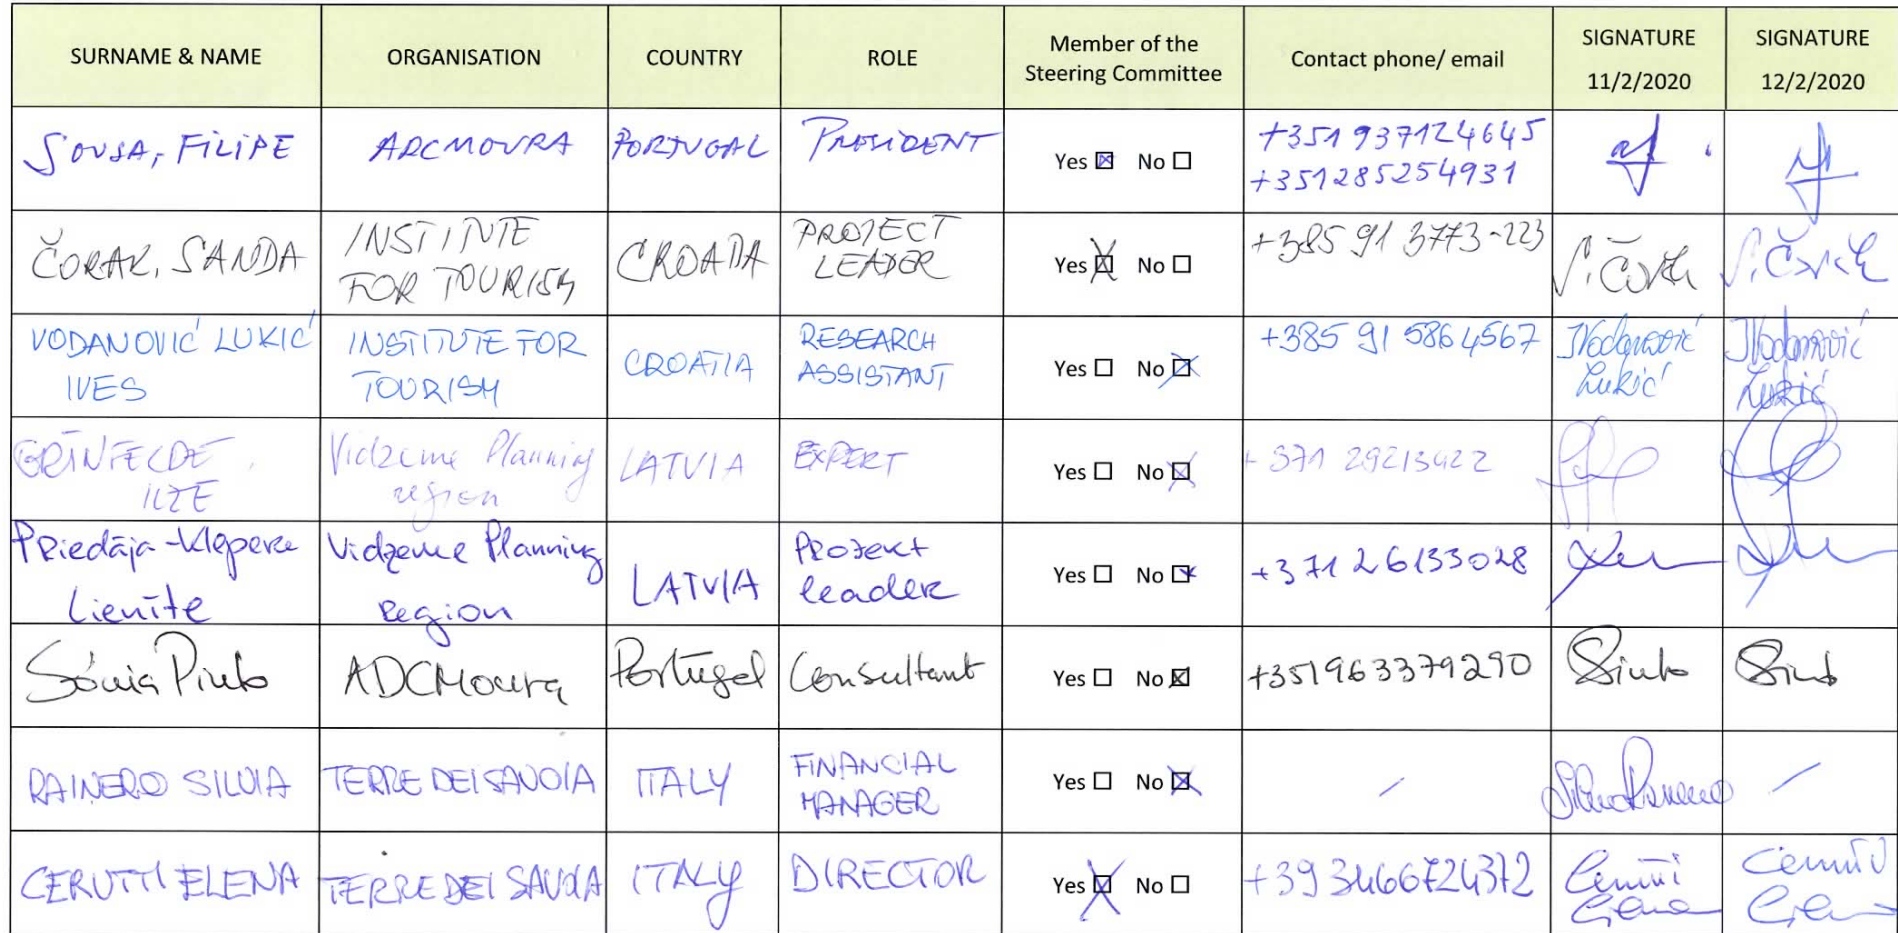 SURNAME & NAME
ORGANISATION
COUNTRY
ROLE
Member of the
Steering Committee
Contact phone/ email
SIGNATURE
11/2/2020
SIGNATURE
12/2/2020
SOUSA, FILIPE
ADCMOURA
PORTUGAL
PRESIDENT
Yes ☒ No ☐
+351 937124645
+351285254931
ČORAK, SANDA
INSTITUTE
FOR TOURISM
CROATIA
PROJECT
LEADER
Yes ☒ No ☐
+385 91 3773-223
S. Čorak
S. Čorak
VODANOVIĆ LUKIĆ
IVES
INSTITUTE FOR
TOURISM
CROATIA
RESEARCH
ASSISTANT
Yes ☐ No ☒
+385 91 586 4567
IVodanović
Lukić
IVodanović
Lukić
GRĪNFELDE,
ILZE
Vidzeme Planning
region
LATVIA
EXPERT
Yes ☐ No ☒
+371 29213422
Priedāja-Klepere
Lienīte
Vidzeme Planning
Region
LATVIA
Project
leader
Yes ☐ No ☒
+371 26133028
Sónia Pinto
ADCMoura
Portugal
Consultant
Yes ☐ No ☒
+351963379290
SPinto
SPinto
RAINERO SILVIA
TERRE DEI SAVOIA
ITALY
FINANCIAL
MANAGER
Yes ☐ No ☒
/
Silvia Rainero
/
CERUTTI ELENA
TERRE DEI SAVOIA
ITALY
DIRECTOR
Yes ☒ No ☐
+39 3466724372
Cerutti
Elena
Cerutti
Elena